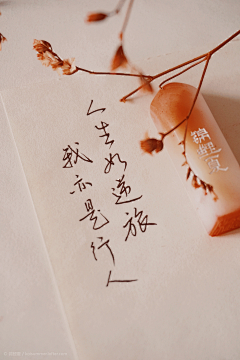 人生如逆旅
我亦是行人